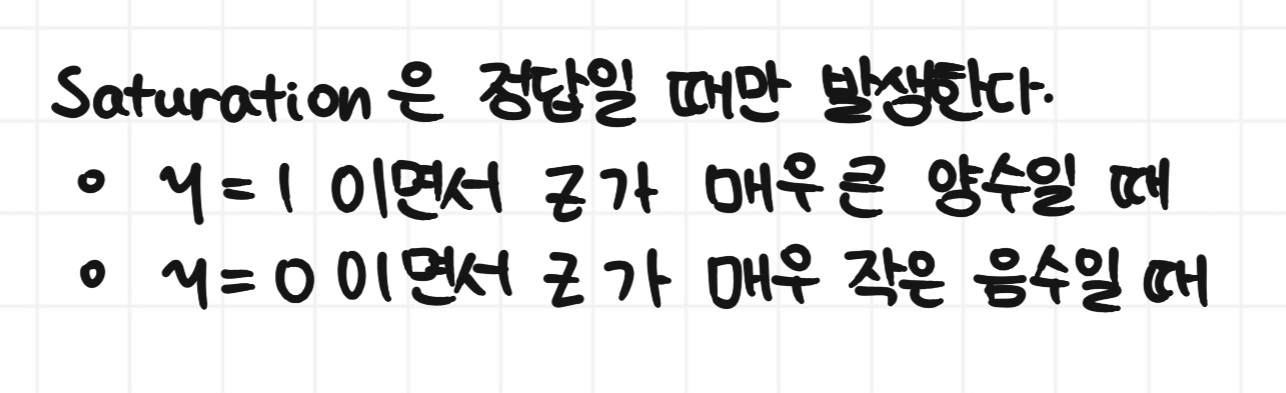 Saturation은 정답일 때만 발생한다.
• y=1 이면서 z가 매우 큰 양수일 때
• y=0 이면서 z가 매우 작은 음수일 때